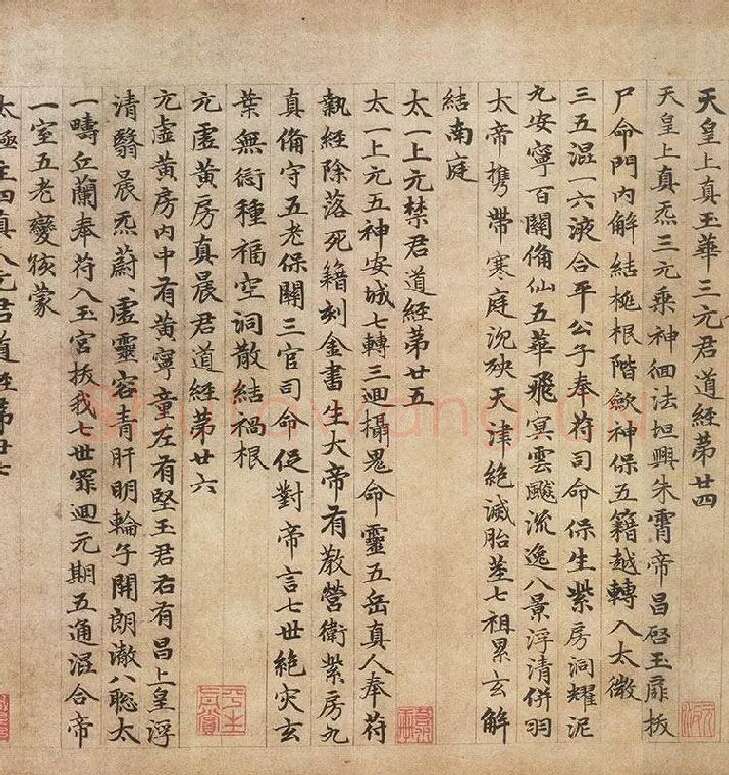 天皇上真玉華三元君道經苐廿四
天皇上真炁三元乘神徊法坦興朱霄帝昌啓玉扉拔
尸命門内解結櫣根階歛神保五籍越轉入太微
三五混一六液合平公子奉苻司命保生紫房洞耀泥
九安寧百關俻仙五華飛冥雲飈流逸八景浮清併羽
太帝携帶寒庭沉殃天津絶滅胎莖七祖累玄解
結南庭
太一上元禁君道經苐廿五
太一上元五神安城七轉三迴攝䰟命靈五岳真人奉苻
執經除落死籍刻金書生大帝有敎營衛紫房九
真俻守五老保關三官司命促對帝言七世絶灾玄
葉無衍種福空洞散結禍根
元虛黃房真晨君道經苐廿六
元虛黃房内中有黃寧童左有堅玉君右有昌上皇浮
清翳晨炁蔚虛靈容青肝明輪子開朗澈八聡太
一疇丘蘭奉苻入玉宮拔我七世罪迴元期五通混合帝
一室五老變孩蒙
太極主四真人元君道經苐廿七